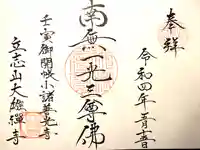 奉拝
令和四年五月三日
南無一光三尊佛
千曲御開帳小諸善光寺
立志山大雄禅寺